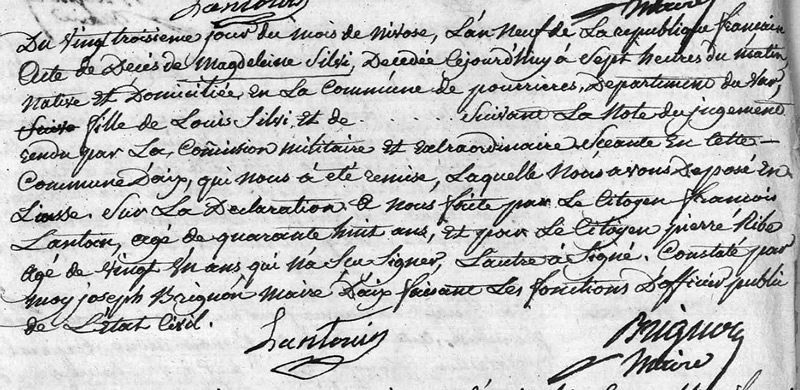 Lantouin maire
Du vingt troisieme jour du mois de nivose, L'an Neuf de La republique francaise
Acte de Decés de Magdeleine Silvi, Decedée Cejourd'huy á Sept heures du matin,
Native Et Domiciliée En La Commune de pourrieres, Departement du Var,
Suiva fille de Louis Silvi Et de . . . . . . . . Suivant La Note du jugement
rendu par La Commission militaire Et extraordinaire Sceante En Cette
Commune D'aix, qui nous á eté remise, Laquelle Nous avons Deposé En
Liasse. Sur La Declaration á Nous faite par Le Citoyen francois
Lantoin, agé de quarante huit ans, Et par Le Citoyen pierre Ribo
agé de vingt Un ans qui na Seu Signer, L'autre á Signé. Constaté par
moy joseph Brignon maire D'aix faisant Les fonctions D'officier public
de L'Etat Civil.
Lantouin Brignon
maire